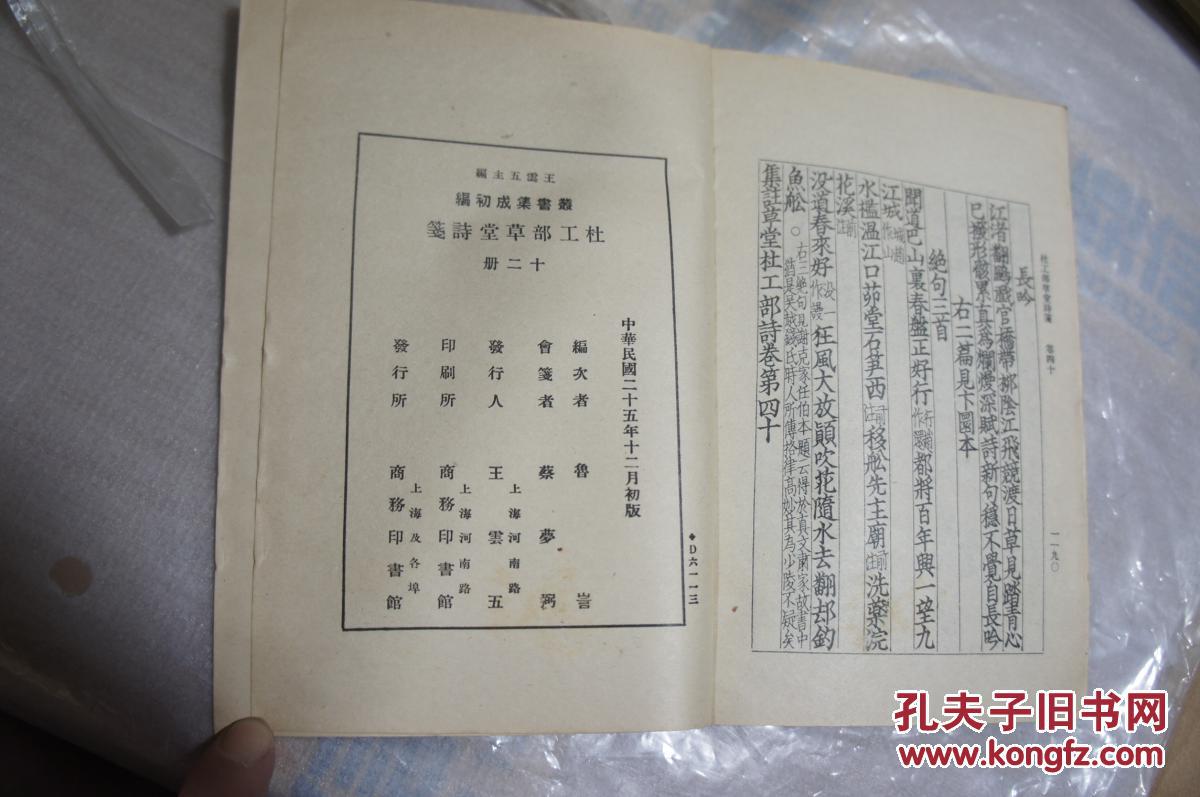 杜工部草堂詩箋 卷四十
一一九〇
長吟
江渚翻鷗戲官橋帶柳陰江飛競渡日草見踏青心
已撥形骸累真為爛熳深賦詩新句穩不覺自長吟
右二篇見卞圜本
絕句三首
聞道巴山裏春盤正好行都將百年興一望九
江城
水檻溫江口茆堂石笋西移舩先主廟洗藥浣
花溪
沒道春來好狂風大放顛吹花隨水去翻却釣
魚舩 ○ 右三絕句見謝克家任伯本題云得於真文肅家故書中
猶是吳越錢氏時人所傳格律高妙其為少陵不疑矣
集註草堂杜工部詩卷第四十
◆D六一一三
中華民國二十五年十二月初版
王雲五主編
叢書集成初編
杜工部草堂詩箋
十二册
編次者 魯訔
會箋者 蔡夢弼
發行人 王雲五 上海河南路
印刷所 商務印書館 上海河南路
發行所 商務印書館 上海及各埠
孔夫子旧书网
www.kongfz.com